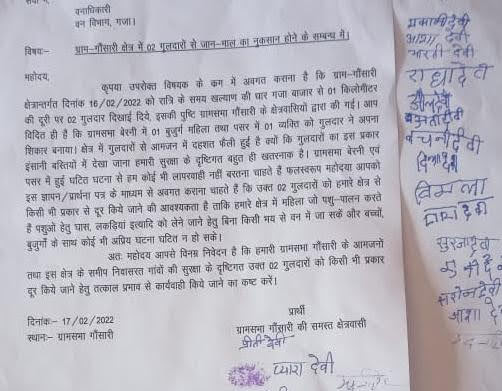 वनाधिकारी
वन विभाग, गजा।
विषय:- ग्राम-गौंसारी क्षेत्र में 02 गुलदारों से जान-माल का नुकसान होने के सम्बन्ध में।
महोदय,
कृपया उपरोक्त विषयक के कम में अवगत कराना है कि ग्राम-गौंसारी
क्षेत्रान्तर्गत दिनांक 16/02/2022 को रात्रि के समय खल्याण की धार गजा बाजार से 01 किलोमीटर
की दूरी पर 02 गुलदार दिखाई दिये, इसकी पुष्टि ग्रामसभा गौंसारी के क्षेत्रवासियों द्वारा की गई। आप
विदित ही है कि ग्रामसभा बेरनी में 01 बुजुर्ग महिला तथा पसर में 01 व्यक्ति को गुलदार ने अपना
शिकार बनाया। क्षेत्र में गुलदारों से आमजन में दहशत फैली हुई है क्यों कि गुलदारों का इस प्रकार
इंसानी बस्तियों में देखा जाना हमारी सुरक्षा के दृष्टिगत बहुत ही खतरनाक है। ग्रामसभा बेरणी एवं
पसर में हुई घटित घटना से हम कोई भी लापरवाही नहीं बरतना चाहते है फलस्वरूप महोदया आपको
इस ज्ञापन/प्रार्थना पत्र के माध्यम से अवगत कराना चाहते है कि उक्त 02 गुलदारों को हमारे क्षेत्र से
किसी भी प्रकार से दूर किये जाने की आवश्यकता है ताकि हमारे क्षेत्र में महिला जो पशु-पालन करते
है पशुओ हेतु घास, लकड़ियां इत्यादि को लेने जाने हेतु बिना किसी भय से वन में जा सकें और बच्चों,
बुजुर्गों के साथ कोई भी अप्रिय घटना घटित न हो सके।
अतः महोदय आपसे विनम्र निवेदन है कि हमारी ग्रामसभा गौंसारी के आमजनों
तथा इस क्षेत्र के समीप निवासरत गांवों की सुरक्षा के दृष्टिगत उक्त 02 गुलदारों को किसी भी प्रकार
दूर किये जाने हेतु तत्काल प्रभाव से कार्यवाही किये जाने का कष्ट करें।
दिनांक:- 17/02/2022
स्थान:- ग्रामसभा गौंसारी
प्रार्थी
ग्रामसभा गौंसारी की समस्त क्षेत्रवासी
प्रीती देवी
प्यारा देवी
मकानी देवी
आशा देवी
आरती देवी
राधा देवी
बचनी देवी
विमला
प्यारा देवी
सरोज देवी
आशा दे